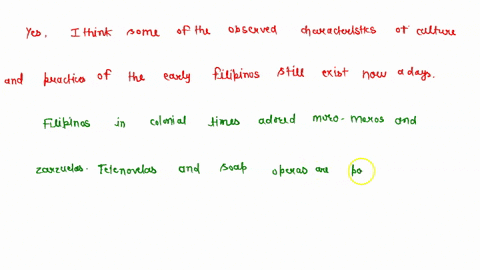 Yes. I think some of the observed characteristcs of culture
and practice of the early filipinos still exist now a days.
Filipinos in colonial times adored moro-moros and
zarzuelas. Telenovelas and soap operas are po